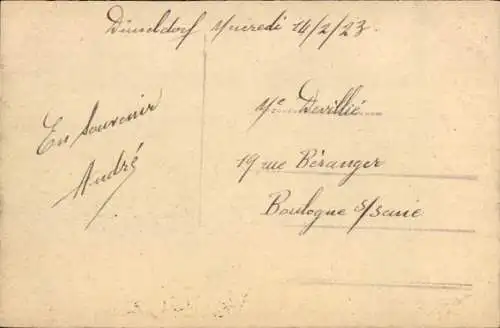 Düsseldorf Mercredi 14/2/23.
En Souvenir
André
Mme Devillié
19 rue Béranger
Boulogne s/Seine